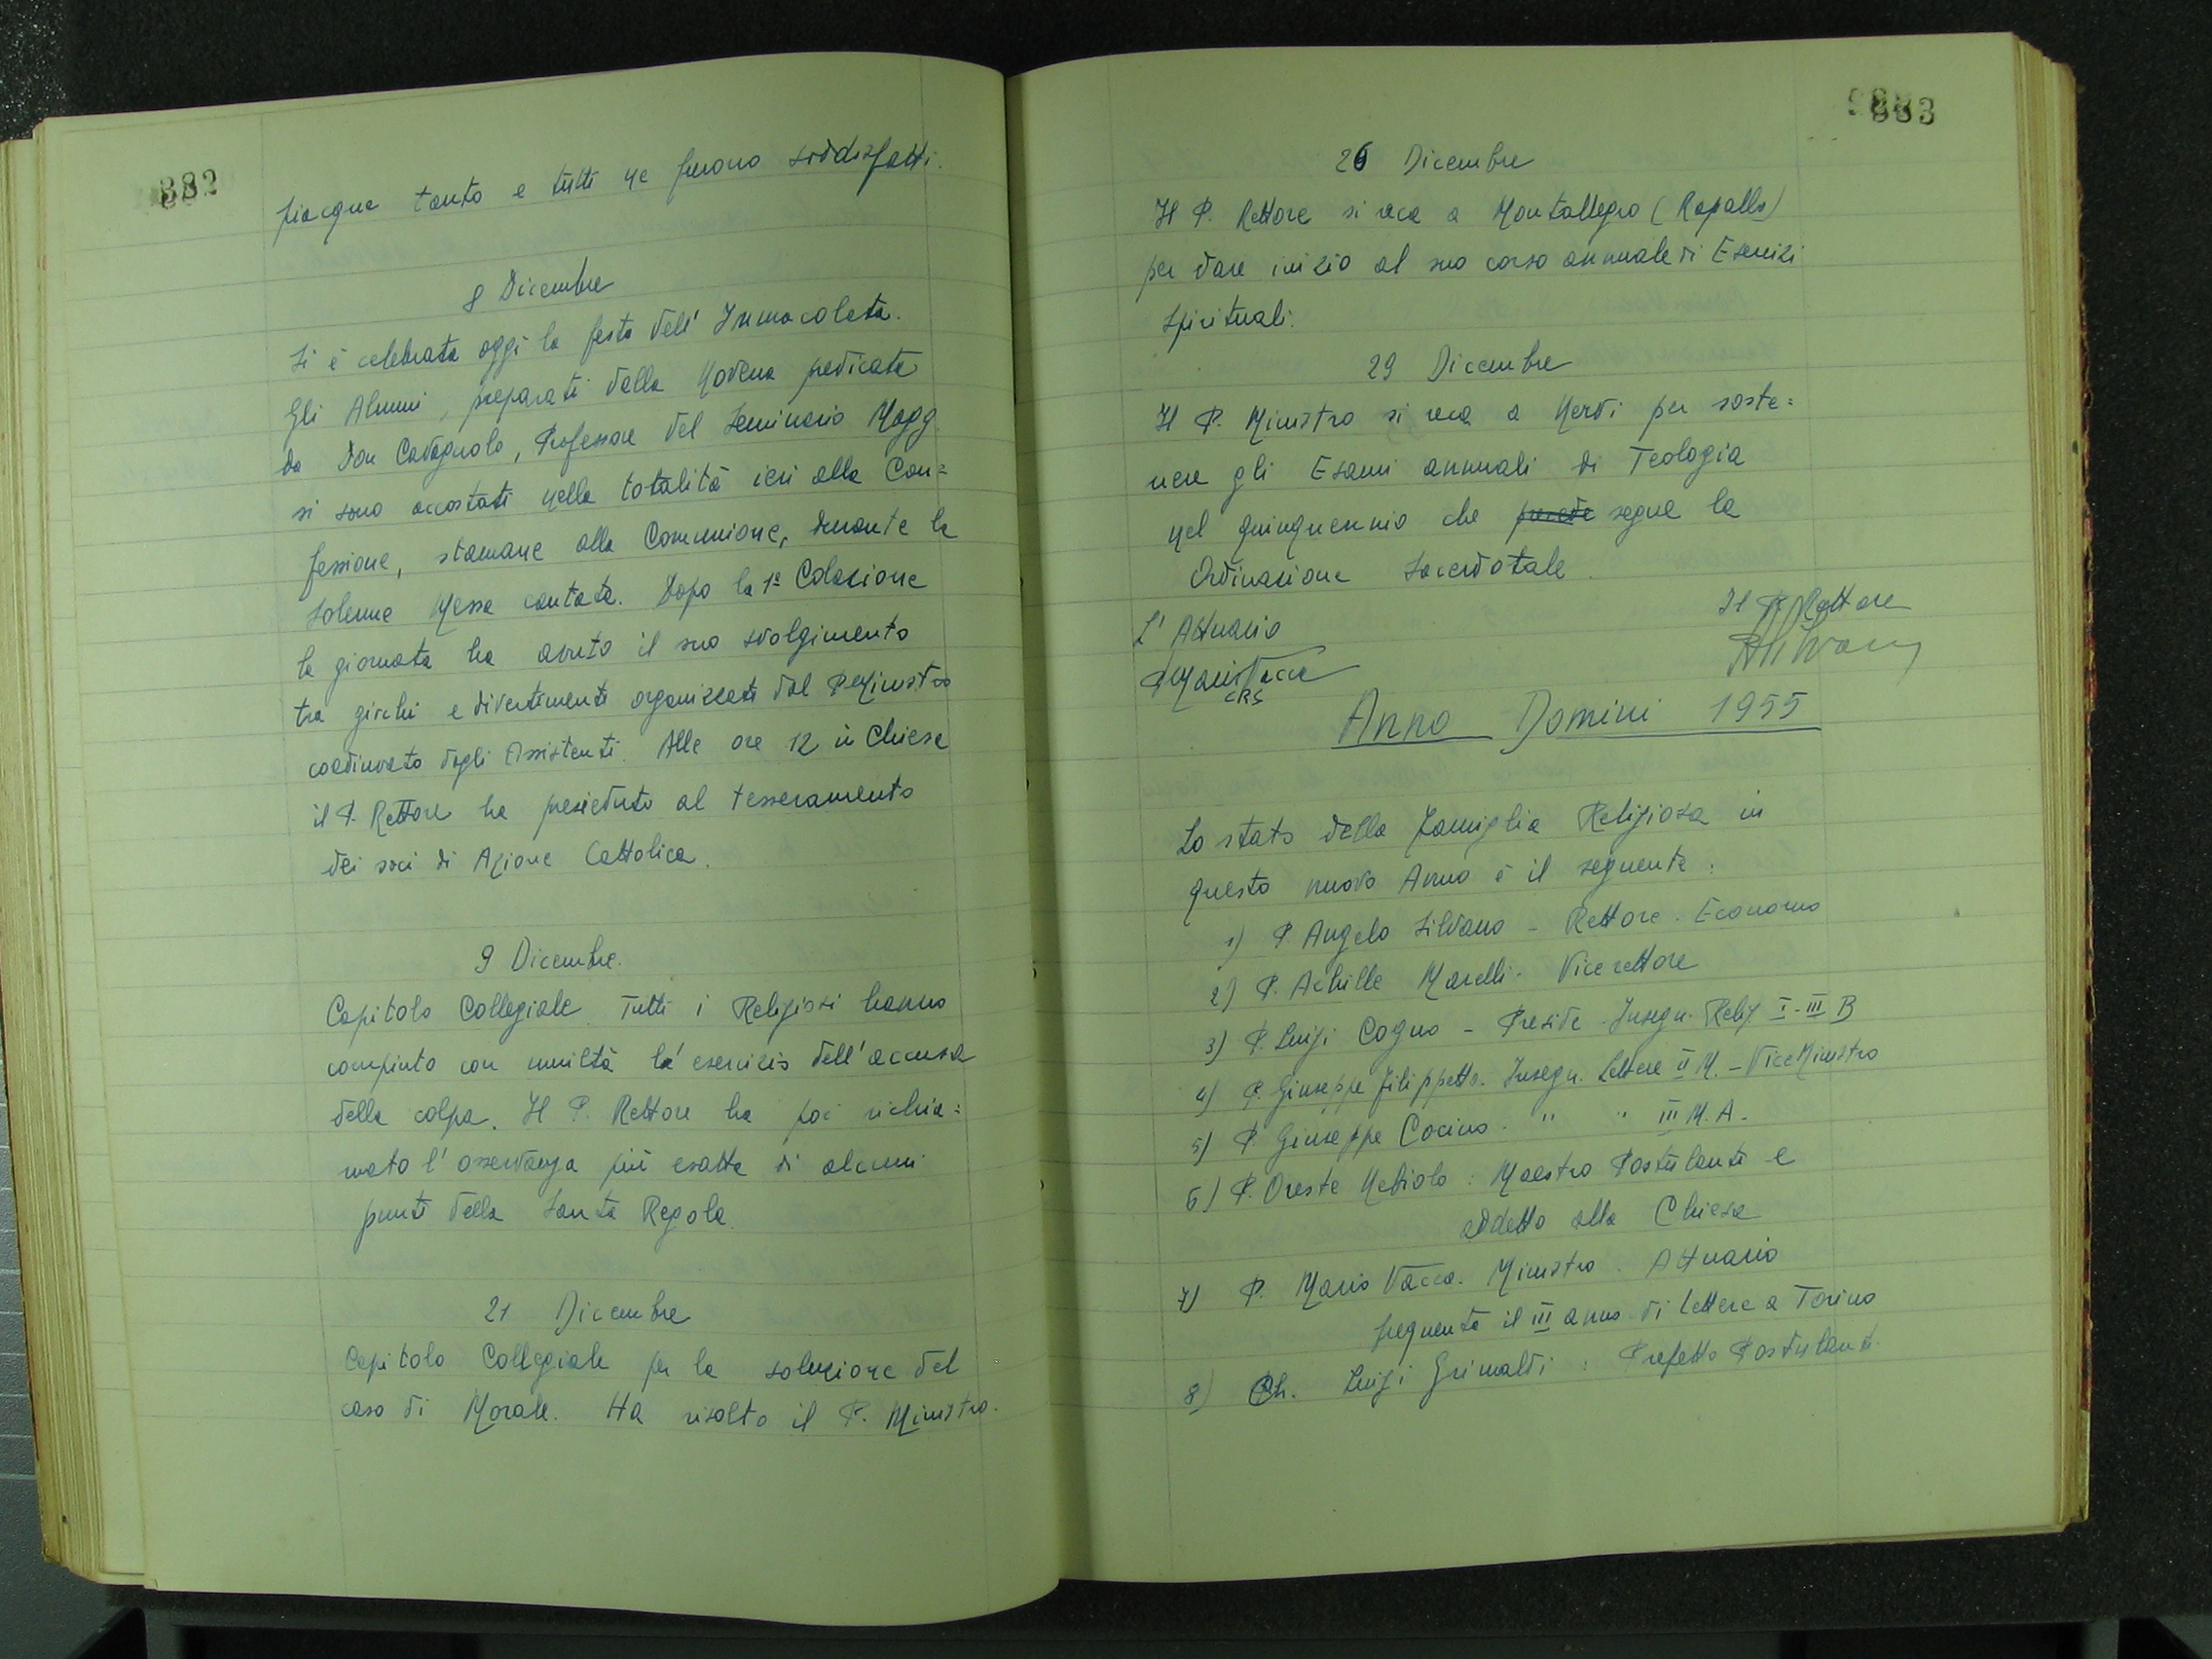 382
piacque tanto e tutti ne furono soddisfatti.
8 Dicembre
Si è celebrata oggi la festa dell' Immacolata.
Gli Alunni, preparati dalla Novena predicata
da Don Cavagnolo, Professore del Seminario Magg.
si sono accostati nella totalità ieri alla Con=
fessione, stamane alla Comunione, durante la
solenne Messa cantata. Dopo la 1ª Colazione
la giornata ha avuto il suo svolgimento
tra giochi e divertimenti organizzati dal P. Ministro
coadiuvato dagli Assistenti. Alle ore 12 in Chiesa
il P. Rettore ha presieduto al tesseramento
dei soci di Azione Cattolica.
9 Dicembre.
Capitolo Collegiale. Tutti i Religiosi hanno
compiuto con umiltà l'esercizio dell'accusa
della colpa. Il P. Rettore ha poi richia=
mato l'osservanza più esatta di alcuni
punti della Santa Regola.
21 Dicembre
Capitolo Collegiale per la soluzione del
caso di Morale. Ha risolto il P. Ministro.
883
26 Dicembre
Il P. Rettore si reca a Montallegro (Rapallo)
per dare inizio al suo corso annuale di Esercizi
Spirituali.
29 Dicembre
Il P. Ministro si reca a Nervi per soste=
nere gli Esami annuali di Teologia
nel quinquennio che precede segue la
Ordinazione Sacerdotale.
Il P. Rettore
L' Attuario
P. Mario Vacca
CRS
Anno Domini 1955
Lo stato della Famiglia Religiosa in
questo nuovo Anno è il seguente:
1) P. Angelo Silvano - Rettore. Economo
2) P. Achille Marelli. Vicerettore
3) P. Luigi Cogno - Preside - Insegn. Relig. I-III B
4) P. Giuseppe Filippetto. Insegn. Lettere II M. - Vice Ministro
5) P. Giuseppe Cocino. " " III M. A.
6) P. Oreste Nebiolo: Maestro Postulanti e
addetto alla Chiesa
7) P. Mario Vacca. Ministro. Attuario
frequenta il III anno di Lettere a Torino
8) Ch. Luigi Grimaldi: Prefetto Postulanti.